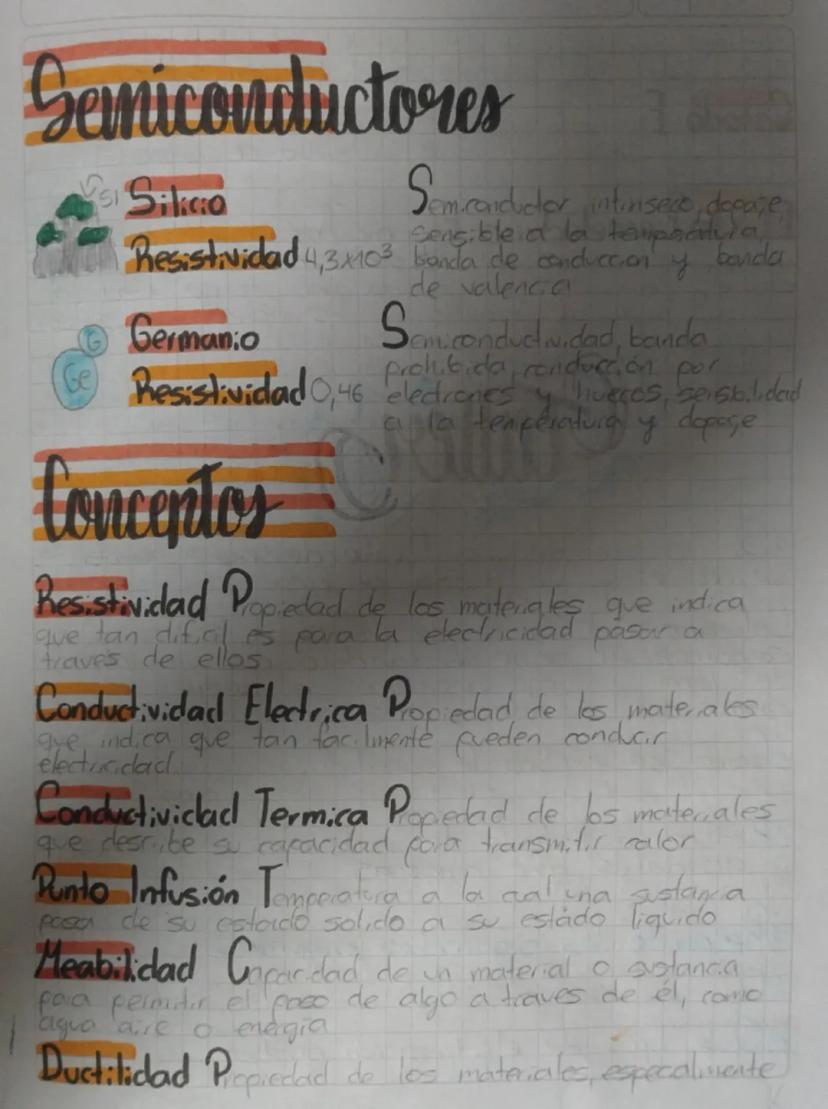 Semiconductores
Si Silicio
Resistividad 4,3x10³
Semiconductor intinseco, dopaje,
sensible a la temperatura,
banda de conduccion y banda
de valencia
G
Ge
Germanio
Resistividad 0,46
Semiconductividad, banda
prohibida, conducción por
electrones y huecos, sensibilidad
a la temperatura y dopaje
Conceptos
Resistividad Propiedad de los materiales que indica
que tan dificil es para la electricidad pasar a
traves de ellos
Conductividad Electrica Propiedad de los materiales
que indica que tan facilmente pueden conducir
electricidad
Conductividad Termica Propiedad de los materiales
que describe su capacidad para transmitir calor
Punto Infusión Temperatura a la cual una sustancia
pasa de su estado solido a su estado liquido
Meabilidad Capacidad de un material o sustancia
para permitir el paso de algo a traves de él, como
agua aire o energia
Ductilidad Propiedad de los materiales, especalmente